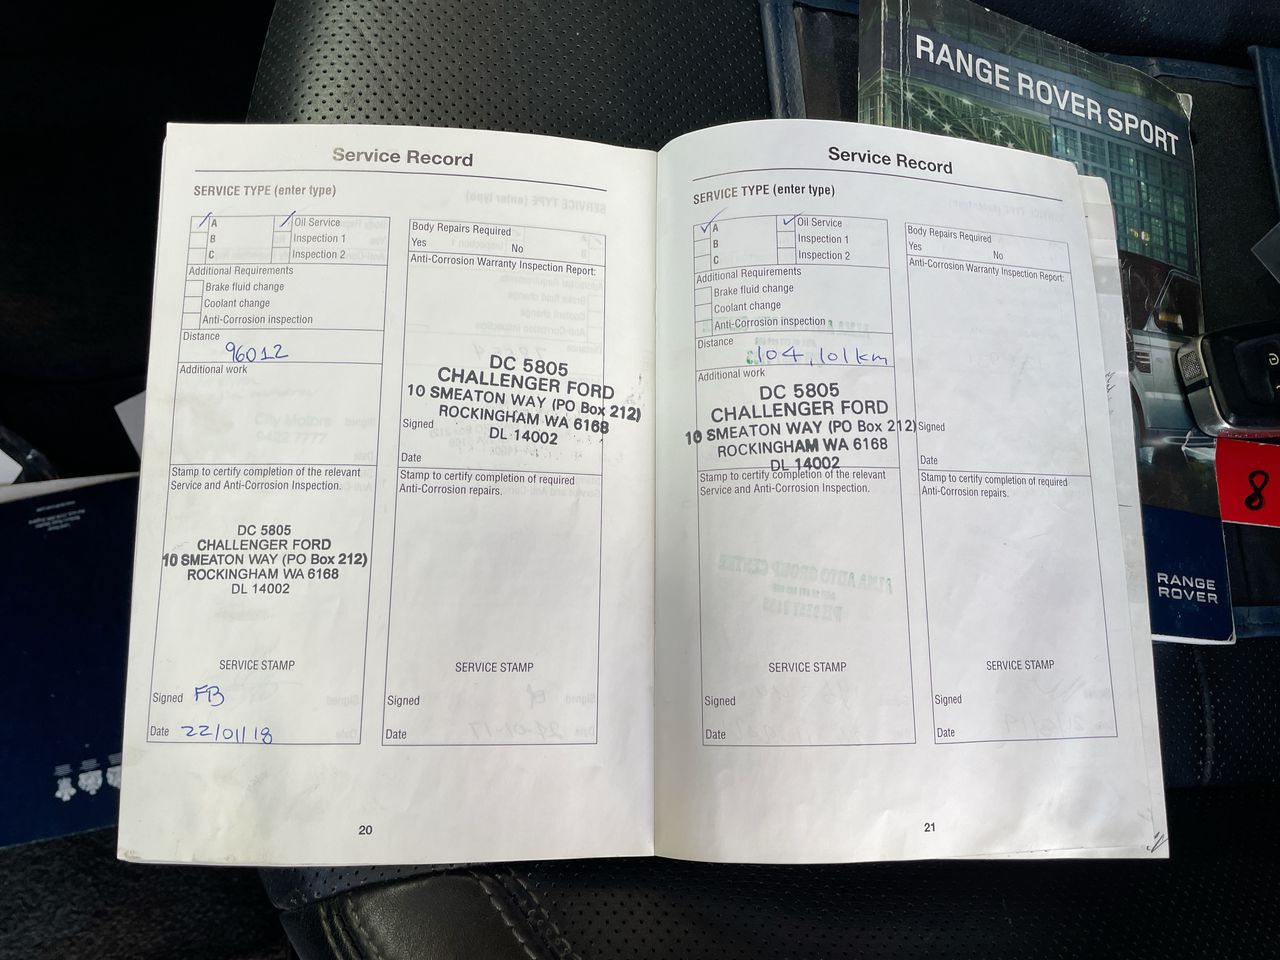 RANGE ROVER SPORT
Service Record
SERVICE TYPE (enter type)
A
Oil Service
B
Inspection 1
C
Inspection 2
Additional Requirements
Brake fluid change
Coolant change
Anti-Corrosion inspection
Distance
96012
Additional work
Stamp to certify completion of the relevant
Service and Anti-Corrosion Inspection.
DC 5805
CHALLENGER FORD
10 SMEATON WAY (PO Box 212)
ROCKINGHAM WA 6168
DL 14002
SERVICE STAMP
Signed FB
Date 22/01/18
Body Repairs Required
Yes No
Anti-Corrosion Warranty Inspection Report:
DC 5805
CHALLENGER FORD
10 SMEATON WAY (PO Box 212)
ROCKINGHAM WA 6168
DL 14002
Signed
Date
Stamp to certify completion of required
Anti-Corrosion repairs.
SERVICE STAMP
Signed
Date
20
Service Record
SERVICE TYPE (enter type)
A
Oil Service
B
Inspection 1
C
Inspection 2
Additional Requirements
Brake fluid change
Coolant change
Anti-Corrosion inspection
Distance
104,101km
Additional work
DC 5805
CHALLENGER FORD
10 SMEATON WAY (PO Box 212)
ROCKINGHAM WA 6168
DL 14002
Stamp to certify completion of the relevant
Service and Anti-Corrosion Inspection.
SERVICE STAMP
Signed
Date
Body Repairs Required
Yes No
Anti-Corrosion Warranty Inspection Report:
Signed
Date
Stamp to certify completion of required
Anti-Corrosion repairs.
SERVICE STAMP
Signed
Date
21
8
RANGE
ROVER